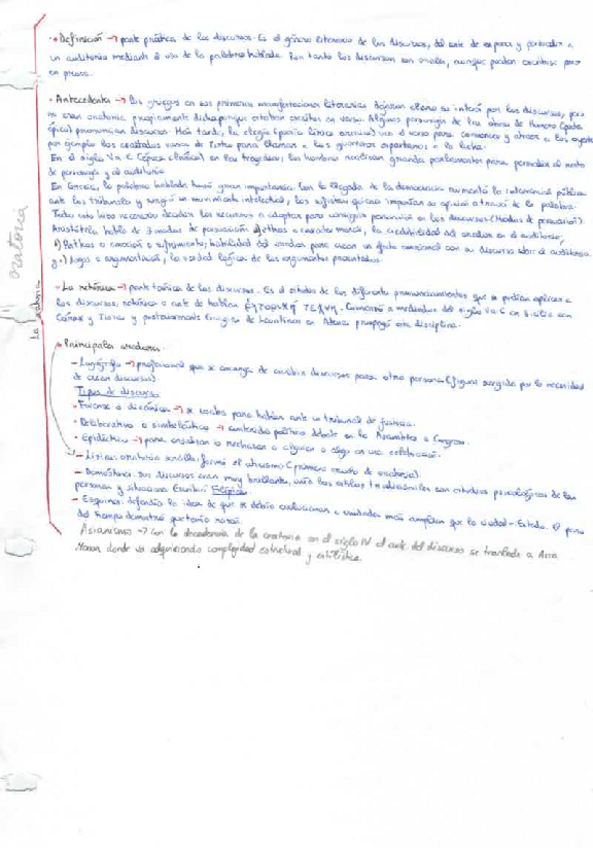 oratoria
La oratoria
• Definición → parte práctica de los discursos. Es el género literario de los discursos, del arte de exponer y persuadir a
un auditorio mediante el uso de la palabra hablada. Por tanto los discursos son orales, aunque podían escribirse pero
en prosa.
• Antecedentes → los griegos en sus primeras manifestaciones literarias dejaron claro su interés por los discursos, pero
no eran oratoria propiamente dicha porque estaban escritos en verso. Algunos personajes de las obras de Homero (poeta
épico) pronuncian discursos. Más tarde, la elegía (poesía lírica arcaica) usa el verso para convencer y atraer a los oyentes
por ejemplo los exaltados versos de Tirteo para llamar a los guerreros espartanos a la lucha.
En el siglo V a.C (época clásica) en las tragedias, los hombres realizan grandes parlamentos para persuadir al resto
de personajes y al auditorio.
En Grecia, la palabra hablada tuvo gran importancia. Con la llegada de la democracia aumentó la intervención pública
ante los tribunales y surgió un movimiento intelectual, los sofistas quienes imponían su opinión a través de la palabra.
Todo esto hizo necesario decidir los recursos a adoptar para conseguir persuasión en los discursos (Modos de persuasión).
Aristóteles habla de 3 modos de persuasión: ethos o carácter moral, la credibilidad del orador en el auditorio,
Pathos o emoción o sufrimiento; habilidad del orador para crear un efecto emocional con su discurso sobre el auditorio
y Logos o argumentación, la verdad lógica de los argumentos presentados.
• La retórica → parte teórica de los discursos. Es el estudio de los diferentes procedimientos que se podían aplicar a
los discursos, retórica o arte de hablar ῥητορική τέχνη. Comenzó a mediados del siglo V a.C en Sicilia con
Córax y Tisias y posteriormente Gorgias de Leontinos en Atenas propagó esta disciplina.
• Principales oradores
- Logógrafo → profesional que se encarga de escribir discursos para otra persona (figura surgida por la necesidad
de crear discursos).
Tipos de discurso
- Forense o dicánica → se escribe para hablar ante un tribunal de justicia.
- Deliberativo o simbuléutico → contenido político debate en la Asamblea o Congreso.
- Epidíctico → para ensalzar o rechazar a alguien o algo en una celebración.
- Lisias: oratoria sencilla; formó el aticismo (primera escuela de oratoria).
- Demóstenes: sus discursos eran muy brillantes, unía los estilos tradicionales con estudios psicológicos de las
personas y situaciones. Escribió Filípicas
- Esquines: defendía la idea de que se debía evolucionar a unidades más amplias que la ciudad-Estado. El paso
del tiempo demostró que tenía razón.
Asianismo → Con la decadencia de la oratoria en el siglo IV el arte del discurso se traslada a Asia
Menor donde va adquiriendo complejidad estructural y estilística.